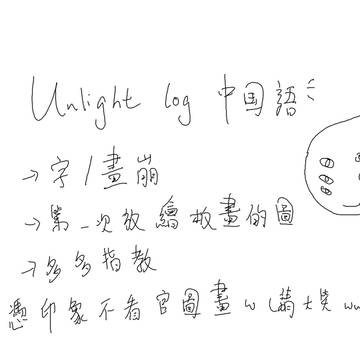 Unlight log 中国語:
→字/畫崩
→第一次放繪板畫的圖
→多多指教
憑印象不看官圖畫w